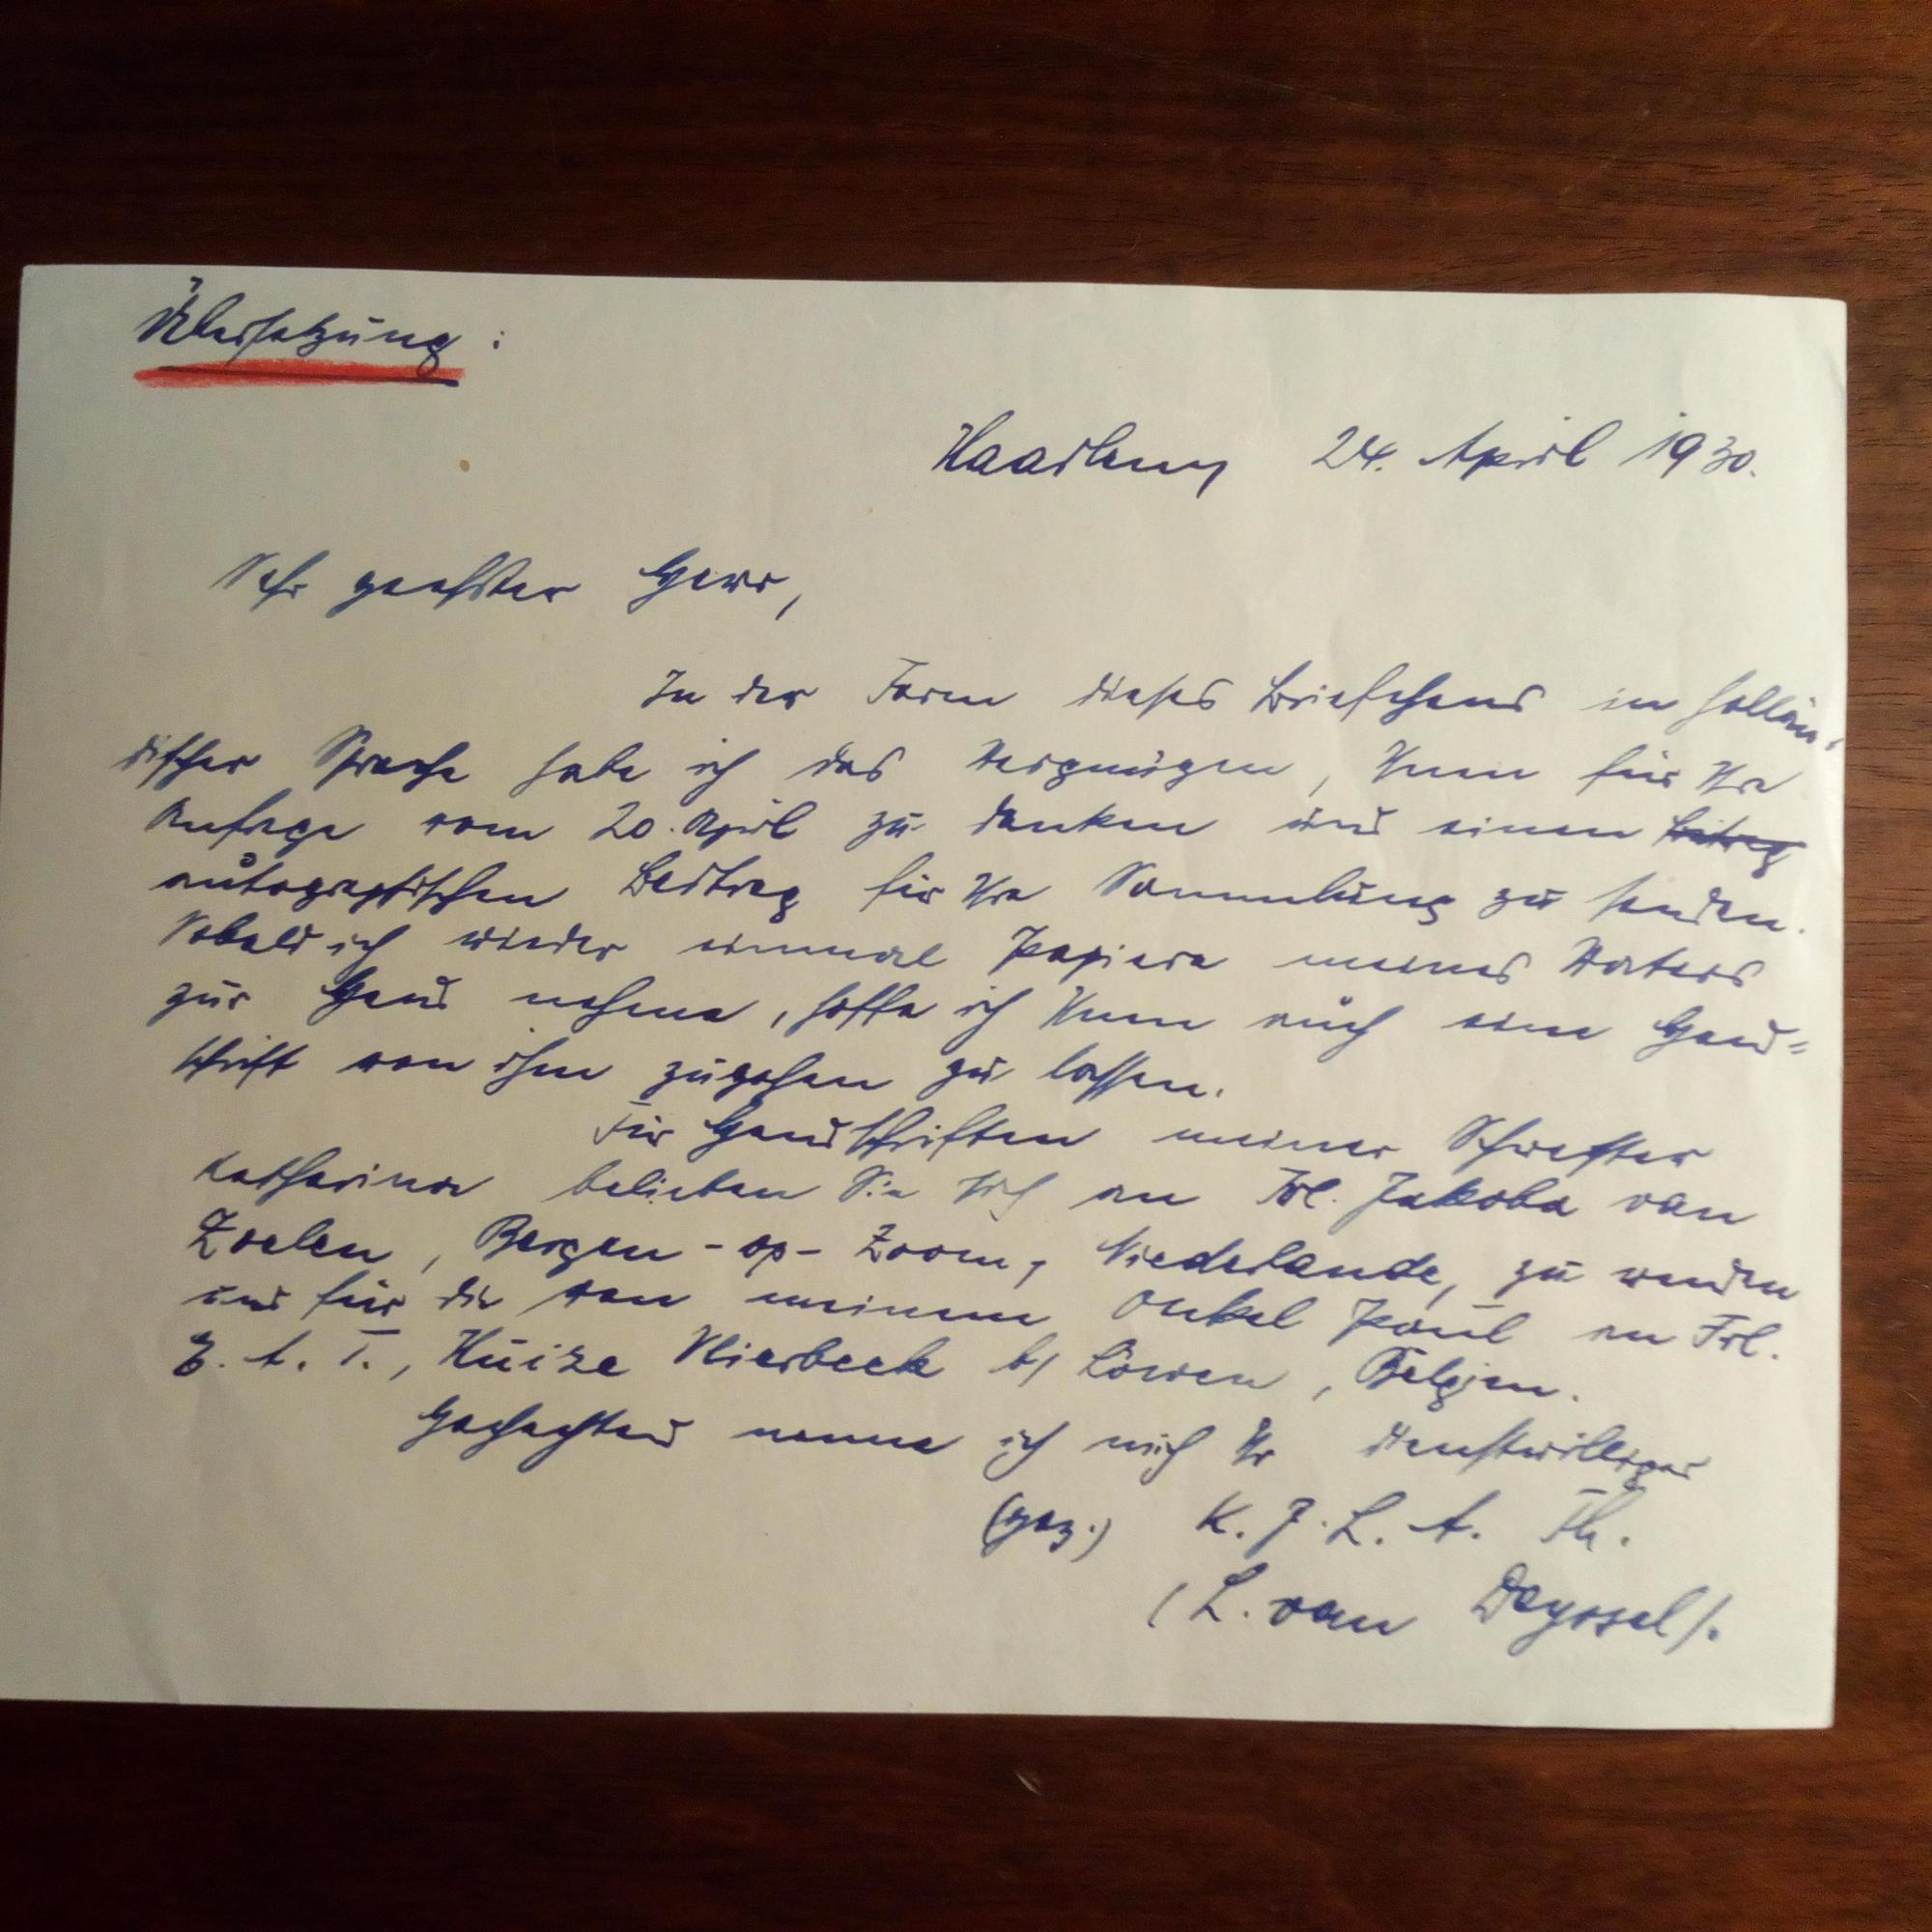 Übersetzung :
Haarlem, 24. April 1930.
Sehr geehrter Herr,
In der Form dieses Briefchens in hollän-
discher Sprache habe ich das Vergnügen, Ihnen für Ihre
Anfrage vom 20. April zu danken und einen Beitrag
autographischen Beitrag für Ihre Sammlung zu senden.
Sobald ich wieder einmal Papiere meines Vaters
zur Hand nehme, hoffe ich Ihnen auch eine Hand=
schrift von ihm zugehen zu lassen.
Für Handschriften meiner Schwester
Katharina belieben Sie sich an Frl. Jakoba van
Zoelen, Bergen-op-Zoom, Niederlande, zu wenden
und für die von meinem Onkel Paul an Frl.
E. A. T., Huize Vlierbeek b/ Löwen, Belgien.
Hochachtend nenne ich mich Ihr dienstwilliger
(gez.) K. J. L. A. Th.
(L. van Deyssel).